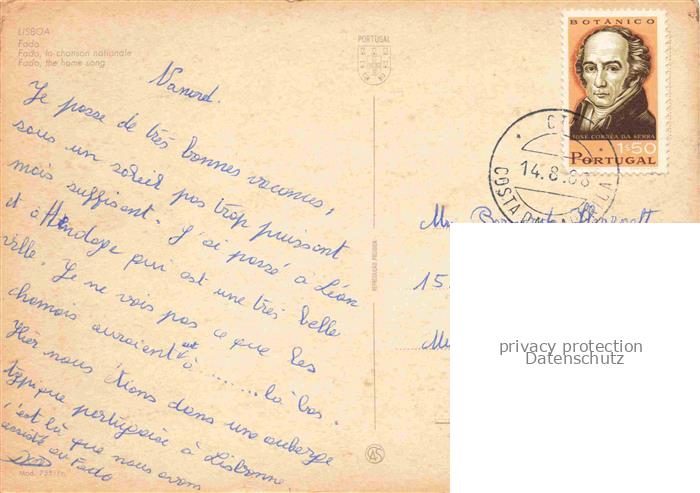 LISBOA
Fado
Fado, la chanson nationale
Fado, the home song
PORTUGAL
BOTÂNICO
JOSÉ CORRÊA DA SERRA
1$50
PORTUGAL
14.8.68
COSTA DA
Je passe de très bonnes vacances,
sous un soleil pas trop puissant
mais suffisant. J'ai passé à Léon
et à qui est une très belle
ville. Je ne vois pas ce que les
chamois auraient été à ........ là bas.
Hier nous étions dans une auberge
typique portugaise à Lisbonne.
c'est là que nous avons
assisté au Fado
Mod.
REPRODUÇÃO PROIBIDA
15
privacy protection
Datenschutz